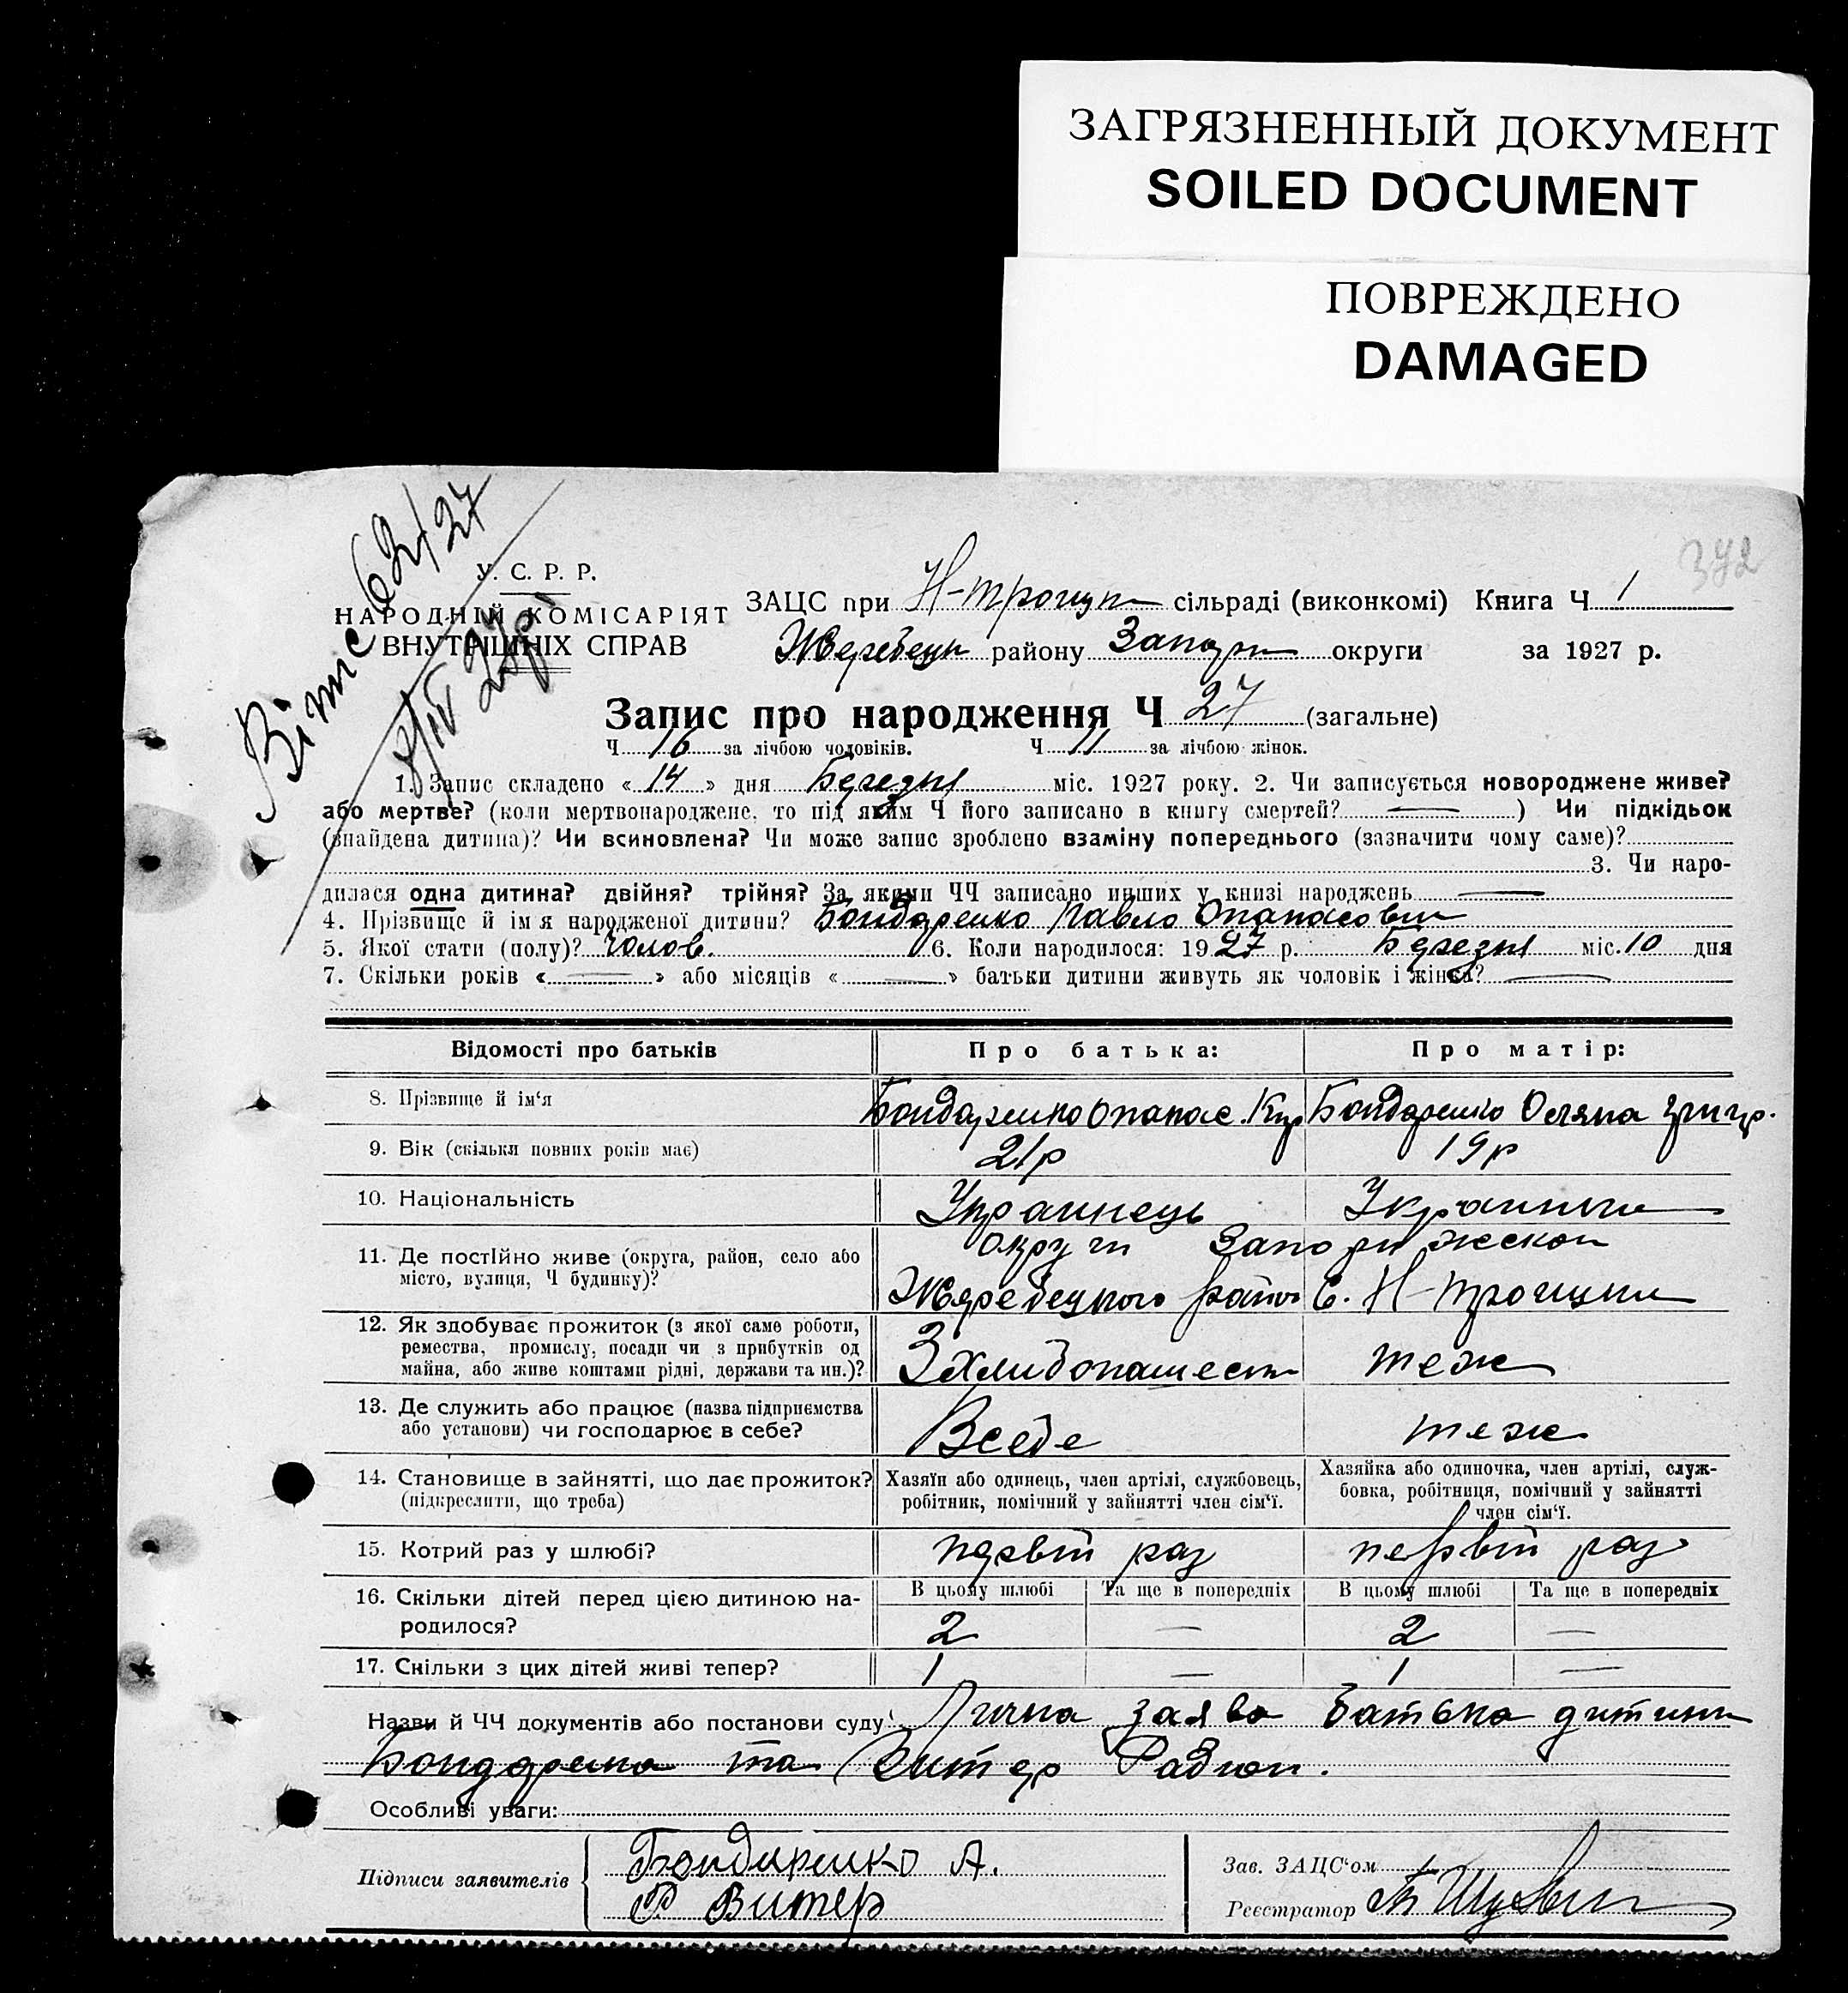 ЗАГРЯЗНЕННЫЙ ДОКУМЕНТ
SOILED DOCUMENT
ПОВРЕЖДЕНО
DAMAGED
372
62/27
У. С. Р. Р.
НАРОДНІЙ КОМІСАРІЯТ
ВНУТРІШНІХ СПРАВ
ЗАЦС при Н-троицк сільраді (виконкомі) Книга Ч 1
Жеребецк району Запор округи за 1927 р.
Запис про народження Ч 27 (загальне)
Ч 16 за лічбою чоловіків. Ч 11 за лічбою жінок.
1. Запис складено « 14 » дня Березня міс. 1927 року. 2. Чи записується новороджене живе?
або мертве? (коли мертвонароджене, то під яким Ч його записано в книгу смертей? — ) Чи підкідьок
(знайдена дитина)? Чи всиновлена? Чи може запис зроблено взаміну попереднього (зазначити чому саме)?
3. Чи наро-
дилася одна дитина? двійня? трійня? За якими ЧЧ записано инших у книзі народжень —
4. Прізвище й імя народженої дитини? Бондаренко Павло Опанасович
5. Якої стати (полу)? Чолов. 6. Коли народилося: 1927 р. Березня міс. 10 дня
7. Скільки років « — » або місяців « — » батьки дитини живуть як чоловік і жінка? —
Відомості про батьків Про батька: Про матір:
8. Прізвище й ім'я Бондаренко Опанас. Бондаренко Григор.
9. Вік (скільки повних років має) 21р 19р
10. Національність Украинець Украинка
11. Де постійно живе (округа, район, село або місто, вулиця, Ч будинку)? округи Запорижской
Жеребецкого район С. Н-Троицки
12. Як здобуває прожиток (з якої саме роботи,
ремества, промислу, посади чи з прибутків од
майна, або живе коштами рідні, держави та ин.)? З хлибопашест теж
13. Де служить або працює (назва підприємства
або установи) чи господарює в себе? Всебе теж
14. Становище в зайнятті, що дає прожиток?
(підкреслити, що треба)
Хазяїн або одинець, член артілі, службовець,
робітник, помічний у зайнятті член сім'ї.
Хазяйка або одиночка, член артілі, служ-
бовка, робітниця, помічний у зайнятті
член сім'ї.
15. Котрий раз у шлюбі? первій раз первій раз
16. Скільки дітей перед цією дитиною на-
родилося?
В цьому шлюбі Та ще в попередніх В цьому шлюбі Та ще в попередніх
2 — 2 —
17. Скільки з цих дітей живі тепер? 1 — 1 —
Назви й ЧЧ документів або постанови суду: Лична заява батька дитини
Бондаренка та Витер Радион.
Особливі уваги:
Підписи заявителів
Бондаренко А.
Р Витер
Зав. ЗАЦС'ом
Реєстратор